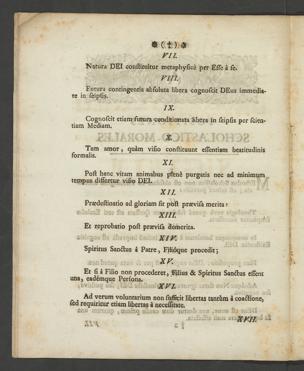 ( † )
VII.
Natura DEI constituitur metaphysicè per Esse à se.
VIII.
Futura contingentia absoluta libera cognoscit DEus immedia-
te in seipsis.
IX.
Cognoscit etiam futura conditionata libera in seipsis per scien-
tiam Mediam.
X.
Tam amor, quàm visio constituunt essentiam beatitudinis
formalis.
XI.
Post hanc vitam animabus plenè purgatis nec ad minimum
tempus differtur visio DEI.
XII.
Prædestinatio ad gloriam sit post prævisa merita:
XIII.
Et reprobatio post prævisa demerita.
XIV.
Spiritus Sanctus à Patre, Filióque procedit;
XV.
Et si à Filio non procederet, Filius & Spiritus Sanctus essent
una, eadémque Persona.
XVI.
Ad verum voluntarium non sufficit libertas tantùm à coactione,
sed requiritur etiam libertas à necessitate.
XVII.